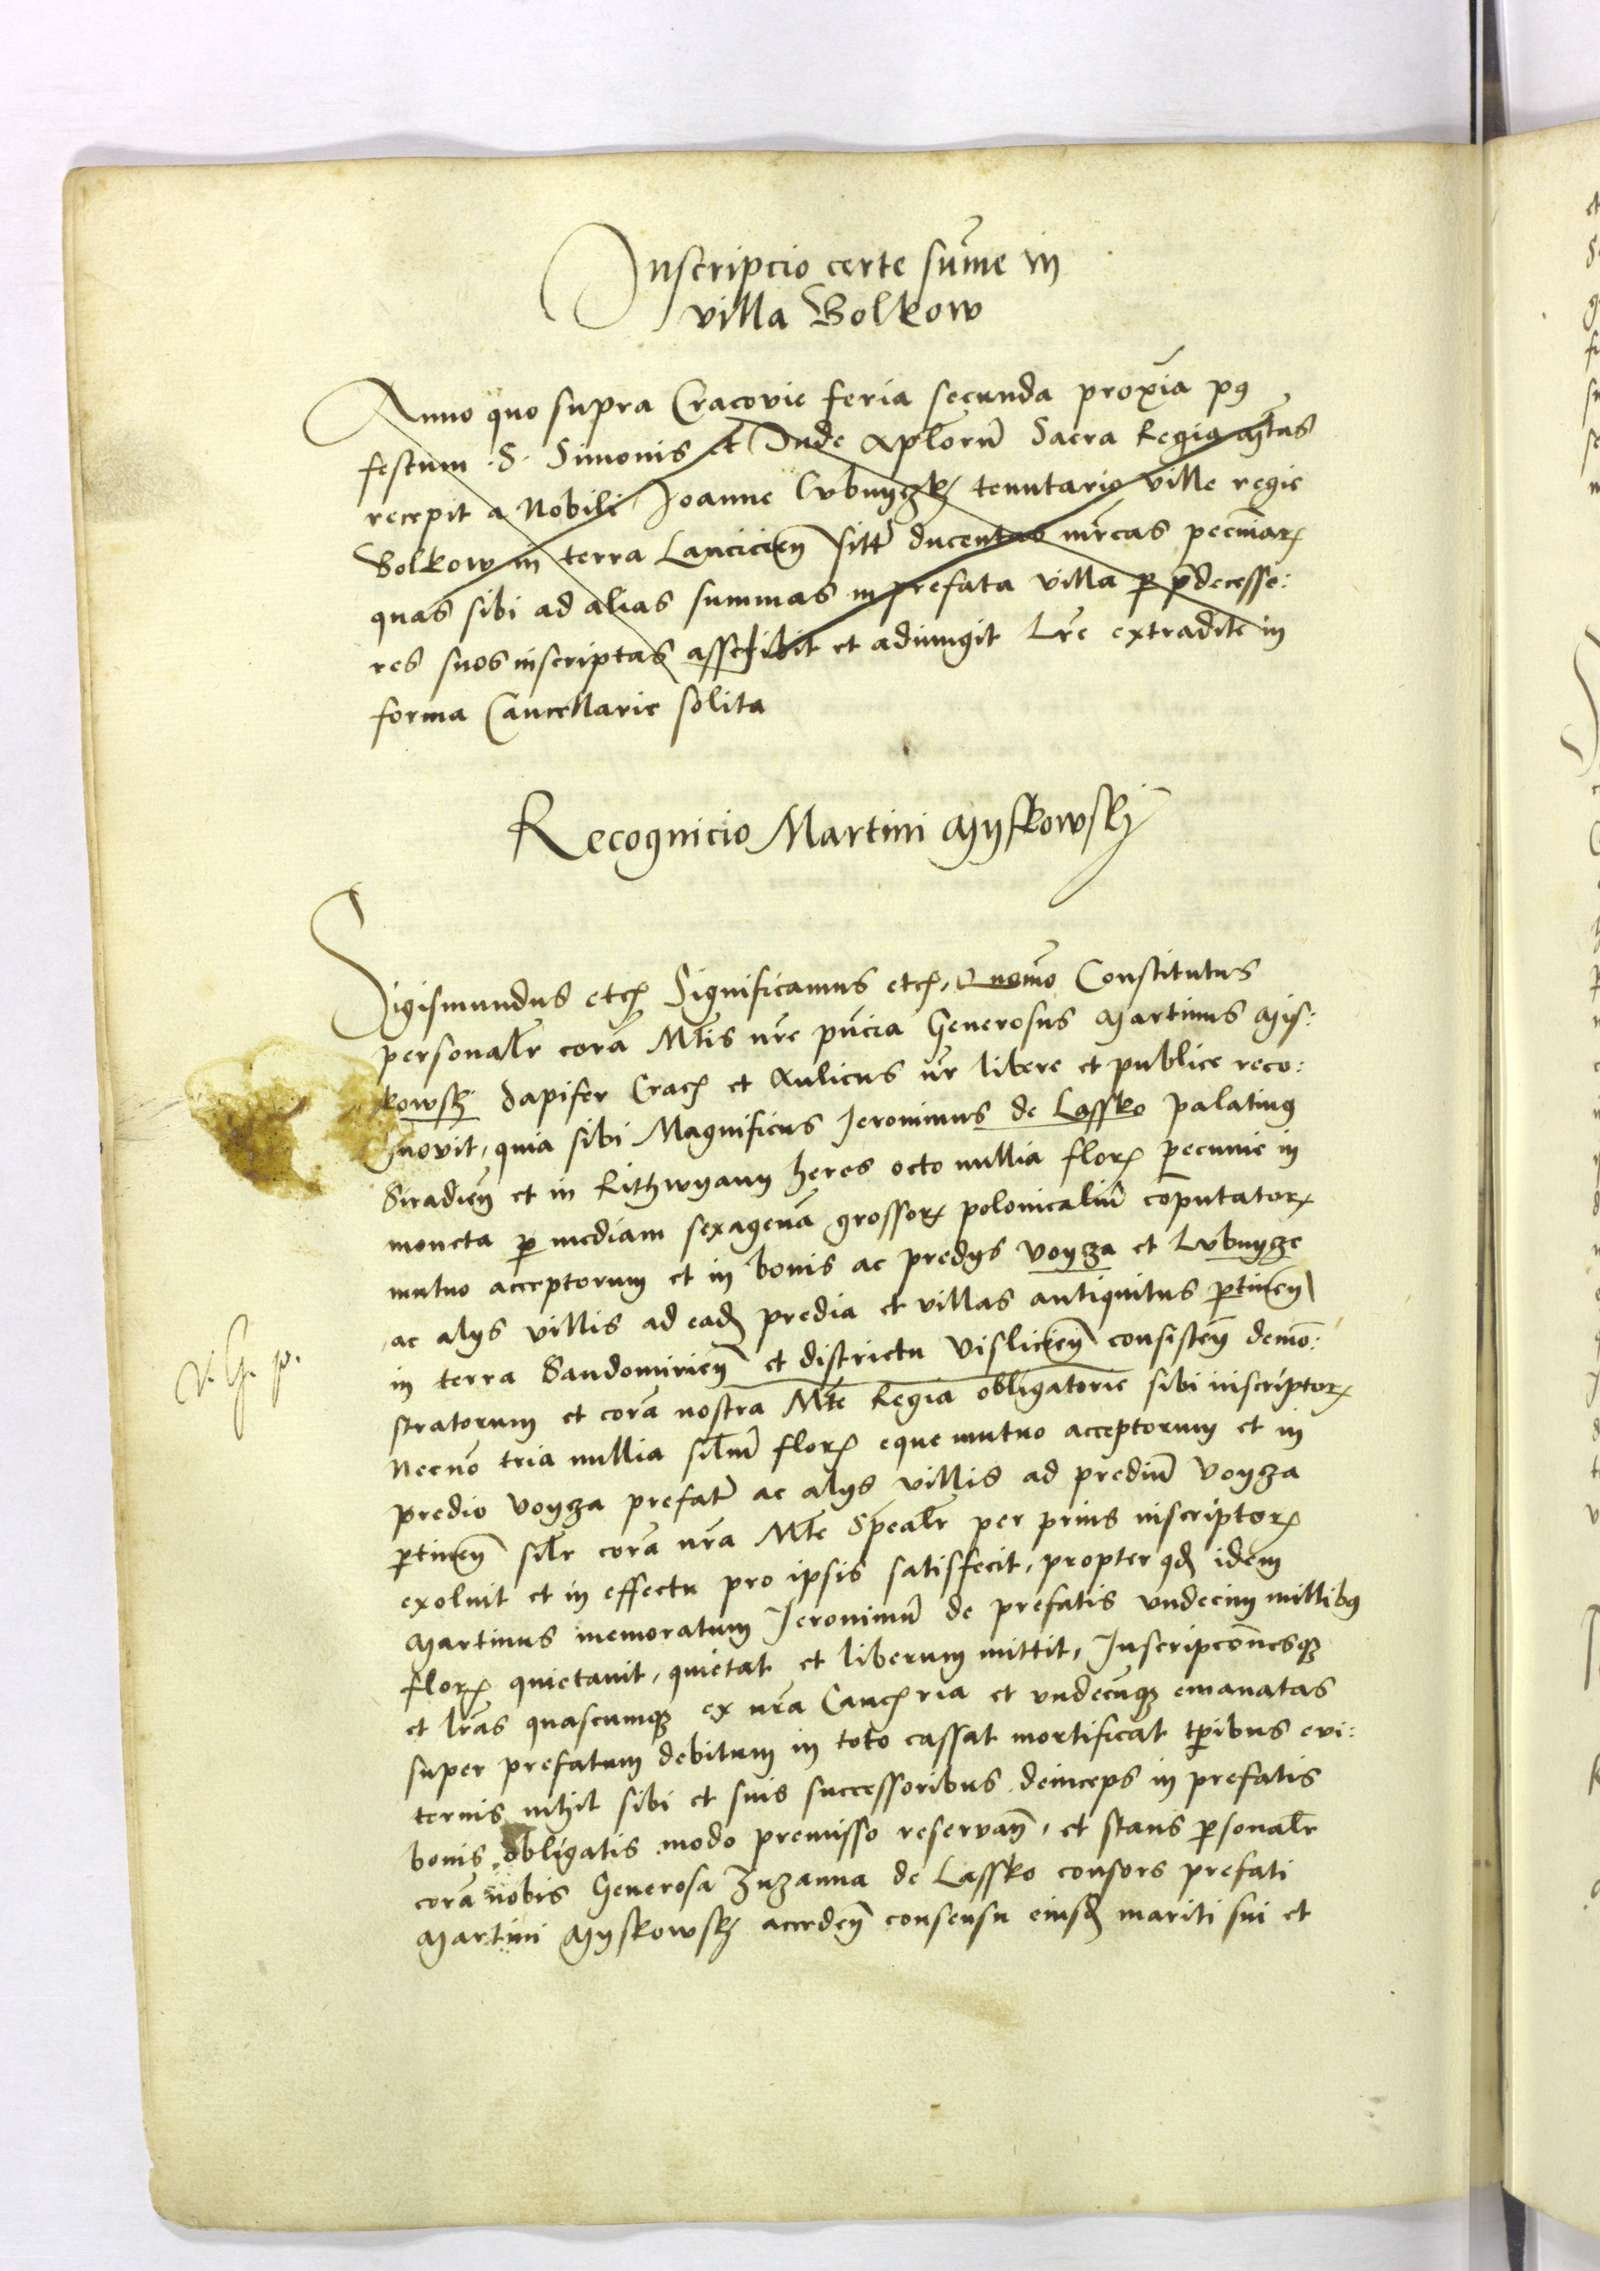 Inscripcio certe sūme in
villa Bolkow
Anno quo supra Cracovie feria secunda proxīa pꝯ
festum .S. Simonis et Iude Aplorū Sacra Regia Mtas
recepit a Nobili Joanne tenutario ville regie
Bolkow in terra Lancicien̄ ducentas mrcas pecuniarꝫ
quas sibi ad alias summas in prefata villa ꝑ p̄decesso:
res suos inscriptas asscribit et adiungit Lr̄e extradite in
forma Cancellarie solita
Recognicio Martini Myskowskij
Sigismundus etcꝫ Significamus etcꝫ. Quomō Constitutus
personalr̄ corā Mtis nr̄e pn̄cia Generosus Martinus Mis:
kowskj dapifer Cracꝫ et Aulicus nr̄ libere et publice reco:
gnovit, quia sibi Magnificus Jeronimus de Lassko palatinꝯ
Siradien̄ et in Rithwyany heres octo millia florꝫ pecunie in
moneta ꝑ mediam sexagenā grossorꝫ polonicaliū cōputatorꝫ
mutuo acceptorum et in bonis ac predijs Voycza et Lubnycze
ac alijs villis ad eadꝫ predia et villas antiquitus ꝑtinen̄
in terra Sandomirien̄ et districtu Vislicien̄ consisten̄ demō:
stratorum et corā nostra Mte Regia obligatorie sibi inscriptorꝫ
Necnō tria millia silium̄ florꝫ eque mutuo acceptorum et in
predio Voycza prefat̄ ac alijs villis ad prediū Voycza
ꝑtinen̄ silr̄ corā nr̄a Mte Spealr̄ per prius inscriptorꝫ
exoluit et in effectu pro ipsis satisfecit, propter qdꝫ idem
Martinus memoratum Jeronimū de prefatis undecim millibꝯ
florꝫ quietavit, quietat et liberum mittit, Inscripcōnesqꝫ
et lr̄as quascumqꝫ ex nr̄a Cancꝫria et undecūqꝫ emanatas
super prefatum debitum in toto cassat mortificat tꝑibus evi:
ternis nihil sibi et suis successoribus deinceps in prefatis
bonis obligatis modo premisso reservan̄, et stans ꝑsonalr̄
corā nobis Generosa Zuzanna de Lassko consors prefati
Martini Myskowskj acceden̄ consensu eiusdꝫ mariti sui et